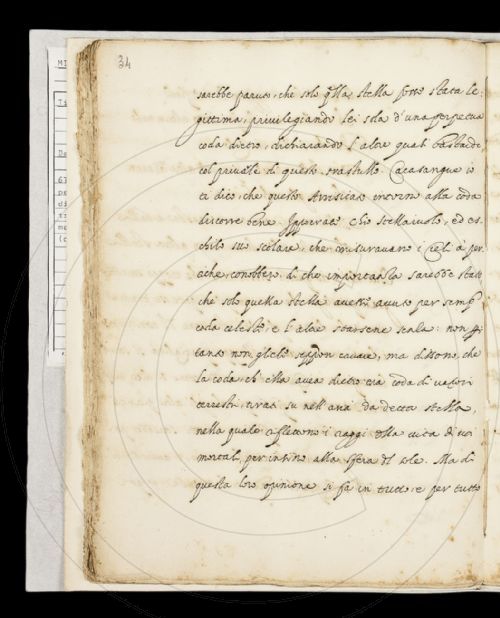 34
sarebbe paruto, che solo q̃lla stella fosse stata le-
gittima, privilegiando lei sola d'una perpetua
coda dietro, dichiarando l'altre quasi bastarde
col privarle di questo trastullo. Cacasangue io
ti dico, che questo intorno alla coda
discorre bene. Ippocrate Chio stellaiuolo, ed es-
chilo suo scolare, che misuravano i Cieli a per
tiche, conobbero di che importanza sarebbe stato
che solo quella stella avesse avuto per semp̃
coda celeste, e l'altre starsene senza: non p̃
tanto non gliele seppon cavare, ma dissono che
la coda, ch'ella avea dietro era coda di vapori
terrestri tirati su nell'aria da detta stella,
nella quale riflettono i raggi dlla vita di noi
mortali, per insino alla sfera dl sole. Ma di
questa loro opinione si fa in tutto, e per tutto
MI